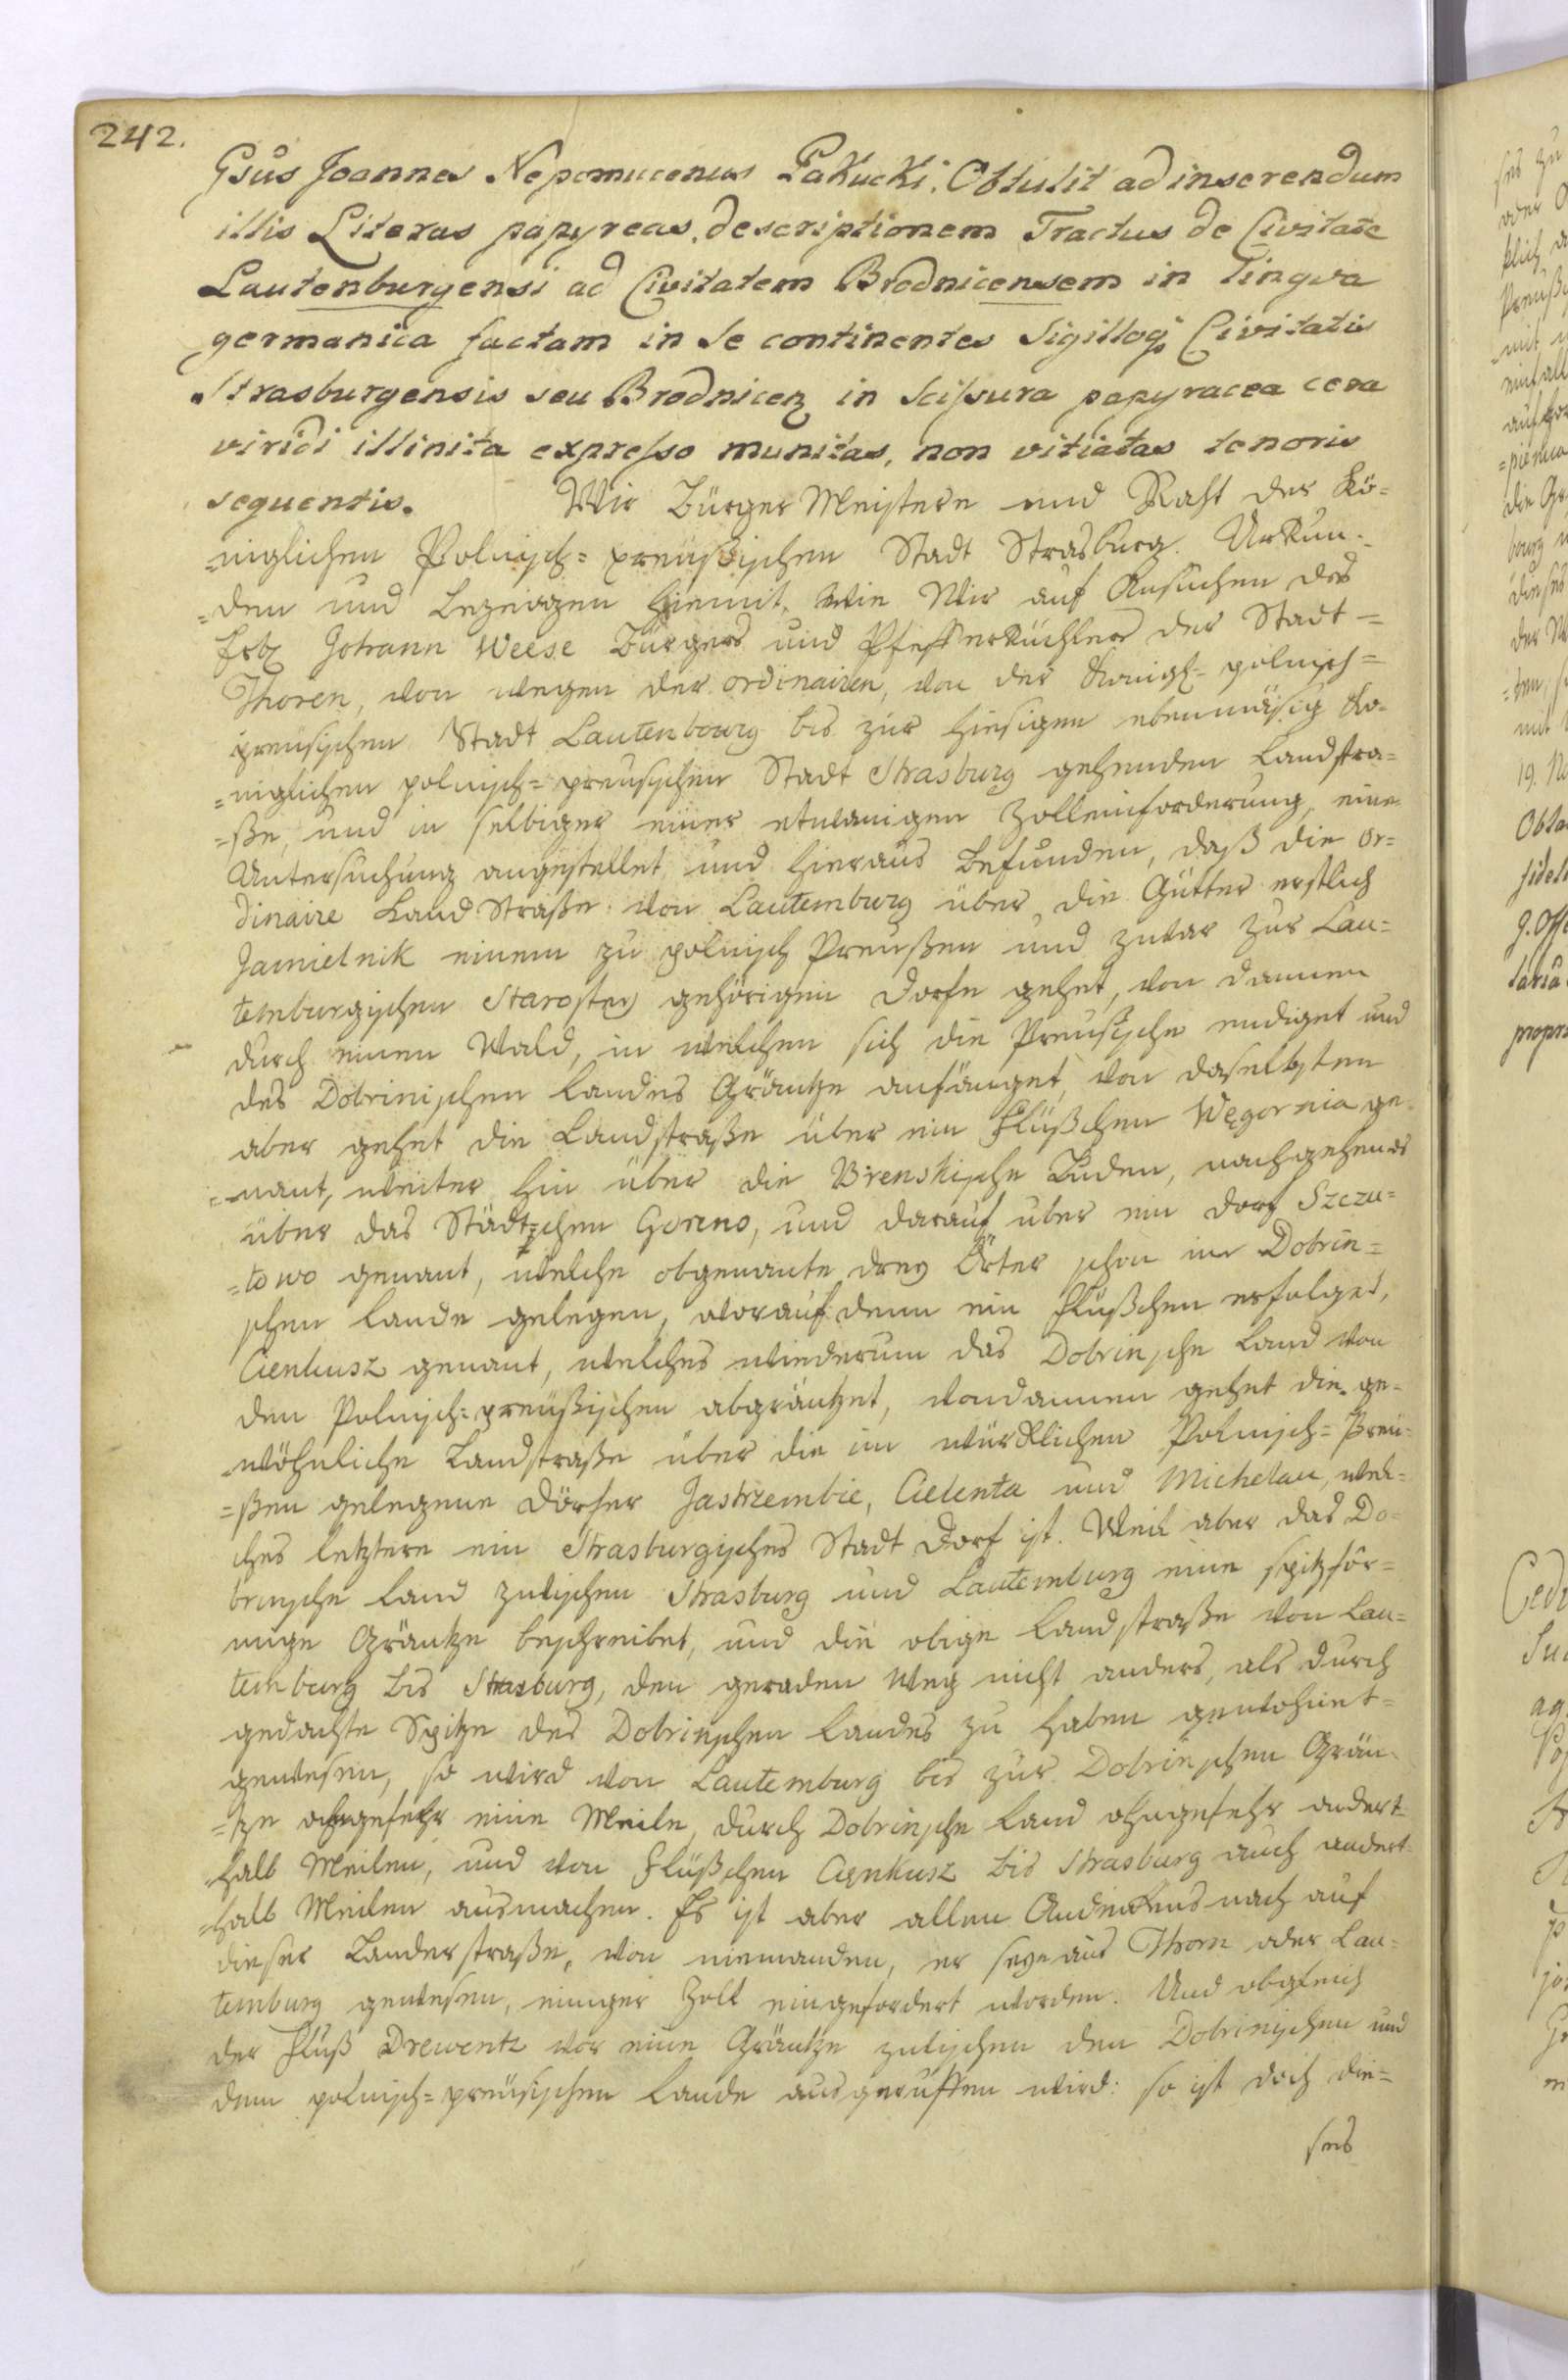 242.
Gsus Joannes Nepomucenus Łakucki. Obtulit ad inserendum
illis Literas papyreas, descriptionem Tractus de Civitate
Lautenburgensi ad Civitatem Brodnicensem in Lingva
germanica factam in Se continentes Sigilloq Civitatis
Strasburgensis seu Brodnicen in Scissura papyracea cera
viridi illinita expresso munitas, non vitiatas tenoris
sequentis. Wir Bürger Meistere und Raht der Kö-
=niglichen Polnisch=preüßischen Stadt Strasburg. Urkun-
=den und bezeigen hiemit, wie Wir auf Ansuchen des
Johann Weese Bürgers und Pfefferküchlers der Stadt=
Thoren, von wegen der ordinairen, von der Konigl= polnisch=
preusischen Stadt Lautenbourg bis zur hiesigen ebenmäsig Ko-
=niglichen polnisch=preusischen Stadt Strasburg gehenden Landstra-
=ße, und in selbiger einer etwanigen Zolleinforderung, eine
Untersuchung angestellet und hieraus befunden, daß die or=
dinaire Land Straße von Lautemburg über die Gütter erstlich
Jamielnik einem zu polnisch Preußen und zwar zur Lau=
temburgischen Starostey gehörigen Dorfe gehet, von dannen
durch einen Wald, in welchen sich die Preusische endiget und
des Dobrinischen Landes Gräntze anfänget, von daselbsten
aber gehet die Landstraße über ein Flüßchen Węgornia ge-
=nant, weiter hin über die Brenskische Buden, nachgehends
über das Städtzchen Gorzno, und darauf uber ein Dorf Szczu=
=towo genant, welche obgenante drey Örter schon im Dobrin=
schen Lande gelegen, worauf denn ein Flüßchen erfolget,
Cienkusz genant, welches wiederum das Dobrinsche Land von
den Polnisch=preüßischen abgräntzet, von dannen gehet die ge-
wöhnliche Landstraße über die im würcklichen Polnisch=Preü-
=ßen gelegene Dörfer Jastrzembie, Cielenta und Michelau, wel=
ches letztere ein Strasburgisches Stadt Dorf ist. Weil aber das Do=
brinsche Land zwischen Strasburg und Lautemburg eine spitzför=
mige Gräntze beschreibet, und die obige Landstraße von Lau=
temburg bis Strasburg, den geraden Weg nicht anders, als durch
gedachte Spitze des Dobrinschen Landes zu haben gewohnet=
gewesen, so wird von Lautemburg bis zur Dobrinschen Grän-
=tze ohngefehr eine Meile, durch Dobrinsche Land ohngefehr andert=
halb Meilen, und von Flüßchen Cienkusz bis Strasburg auch andert=
=halb Meilen ausmachen. Es ist aber allen Andenkens nach auf
dieser Landerstraße, von niemanden, er seye aus Thorn oder Lau=
temburg gewesen, einiger Zoll eingefordert worden. Und obgleich
der Fluß Drewentz vor eine Gräntze zwischen den Dobrinischen und
dem polnisch=preüsischen Lande ausgeruffen wird: so ist doch die=
ses